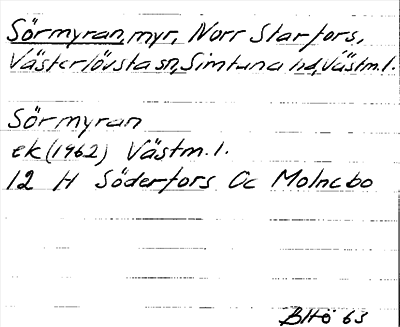 Sörmyran, myr, Norr Starfors,
Västerlövsta sn, Simtuna hd, Västm.l.
Sörmyran
ek (1962) Västm.l.
12 H Söderfors Oc Molnebo
BHö 63